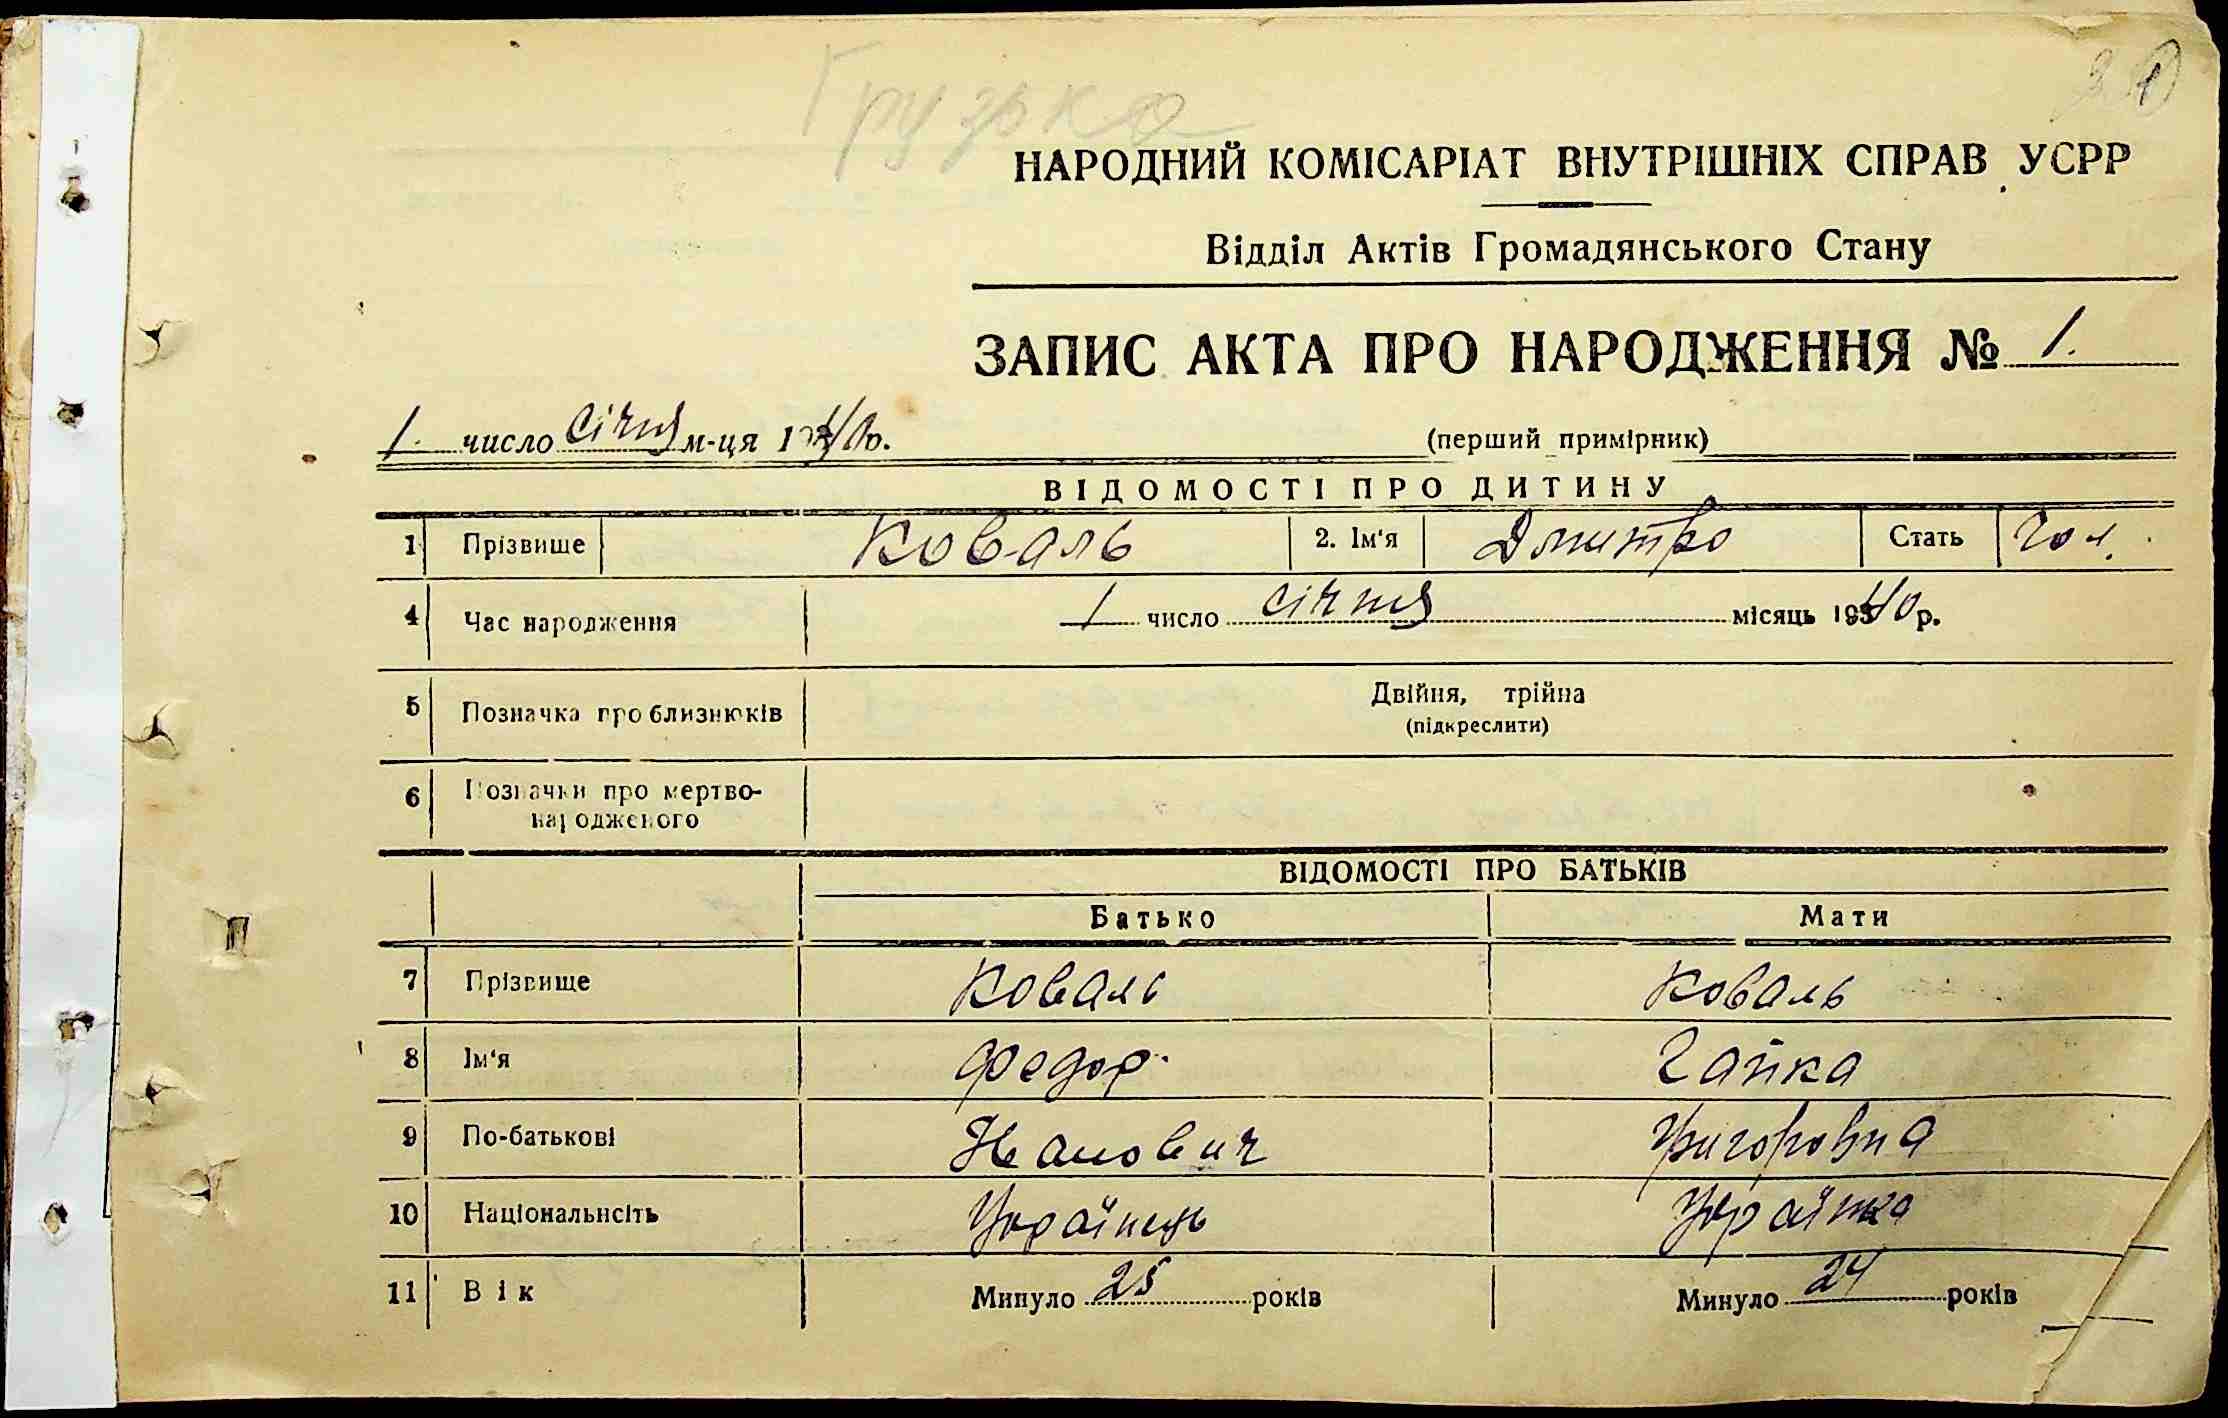 Грузька
НАРОДНИЙ КОМІСАРІАТ ВНУТРІШНІХ СПРАВ УСРР
Відділ Актів Громадянського Стану
ЗАПИС АКТА ПРО НАРОДЖЕННЯ № 1.
1. число січня м-ця 1940р.
(перший примірник)
ВІДОМОСТІ ПРО ДИТИНУ
1 Прізвище Коваль 2. Ім'я Дмитро Стать чол.
4 Час народження 1 число січня місяць 1940 р.
5 Позначка про близнюків Двійня, трійна
(підкреслити)
6 Позначки про мертво-
народженого
ВІДОМОСТІ ПРО БАТЬКІВ
Батько Мати
7 Прізвище Коваль Коваль
8 Ім'я Федор Ганка
9 По-батькові Григоровна
10 Національнсіть Українець Українка
11 Вік Минуло 25 років Минуло 24 років